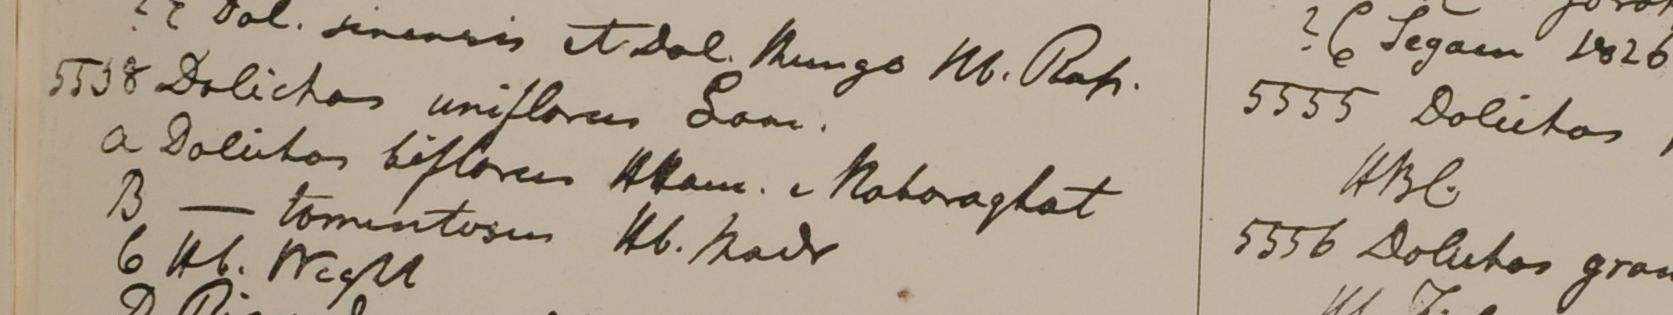 Dol. sinensis et Dol. Mungo Hb. Rap.
5538 Dolichos uniflorus Lam.
a Dolichos biflorus HHam. e Nohoraghat
B — tomentosus Hb. Madr
C Hb. Wight
D
? C Segaen 1826
5555 Dolichos
HBC.
5556 Dolichos gran
Hb.